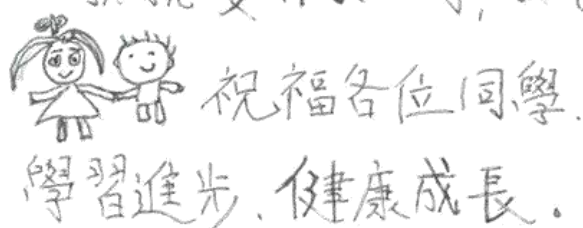 祝福各位同學、
學習進步、健康成長。